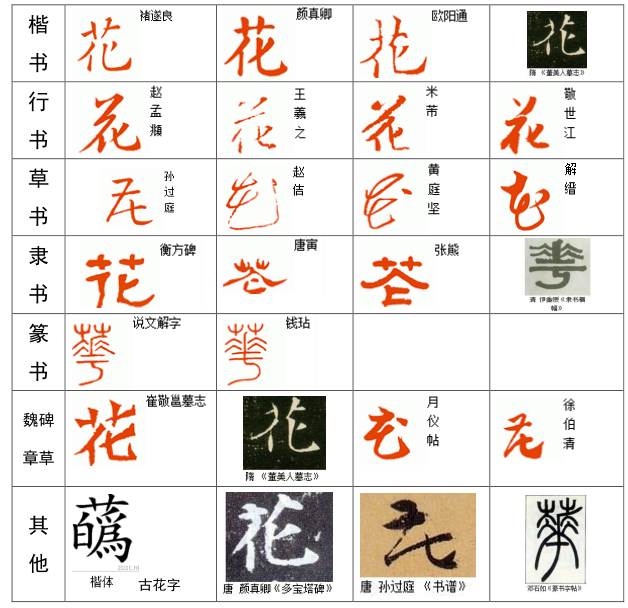 楷书 花 褚遂良 花 颜真卿 花 欧阳通 花 隋 《董美人墓志》
行书 花 赵孟頫 花 王羲之 花 米芾 花 敬世江
草书 花 孙过庭 花 赵佶 花 黄庭坚 花 解缙
隶书 花 衡方碑 花 唐寅 花 张熊 華 清 伊秉绶《隶书横幅》
篆书 華 说文解字 華 钱玷
魏碑 章草 花 崔敬邕墓志 花 隋 《董美人墓志》 花 月仪帖 花 徐伯清
其他 蘤 ZDIC.NET 楷体 古花字 花 唐 颜真卿《多宝塔碑》 花 唐 孙过庭 《书谱》 華 邓石如《篆书字帖》